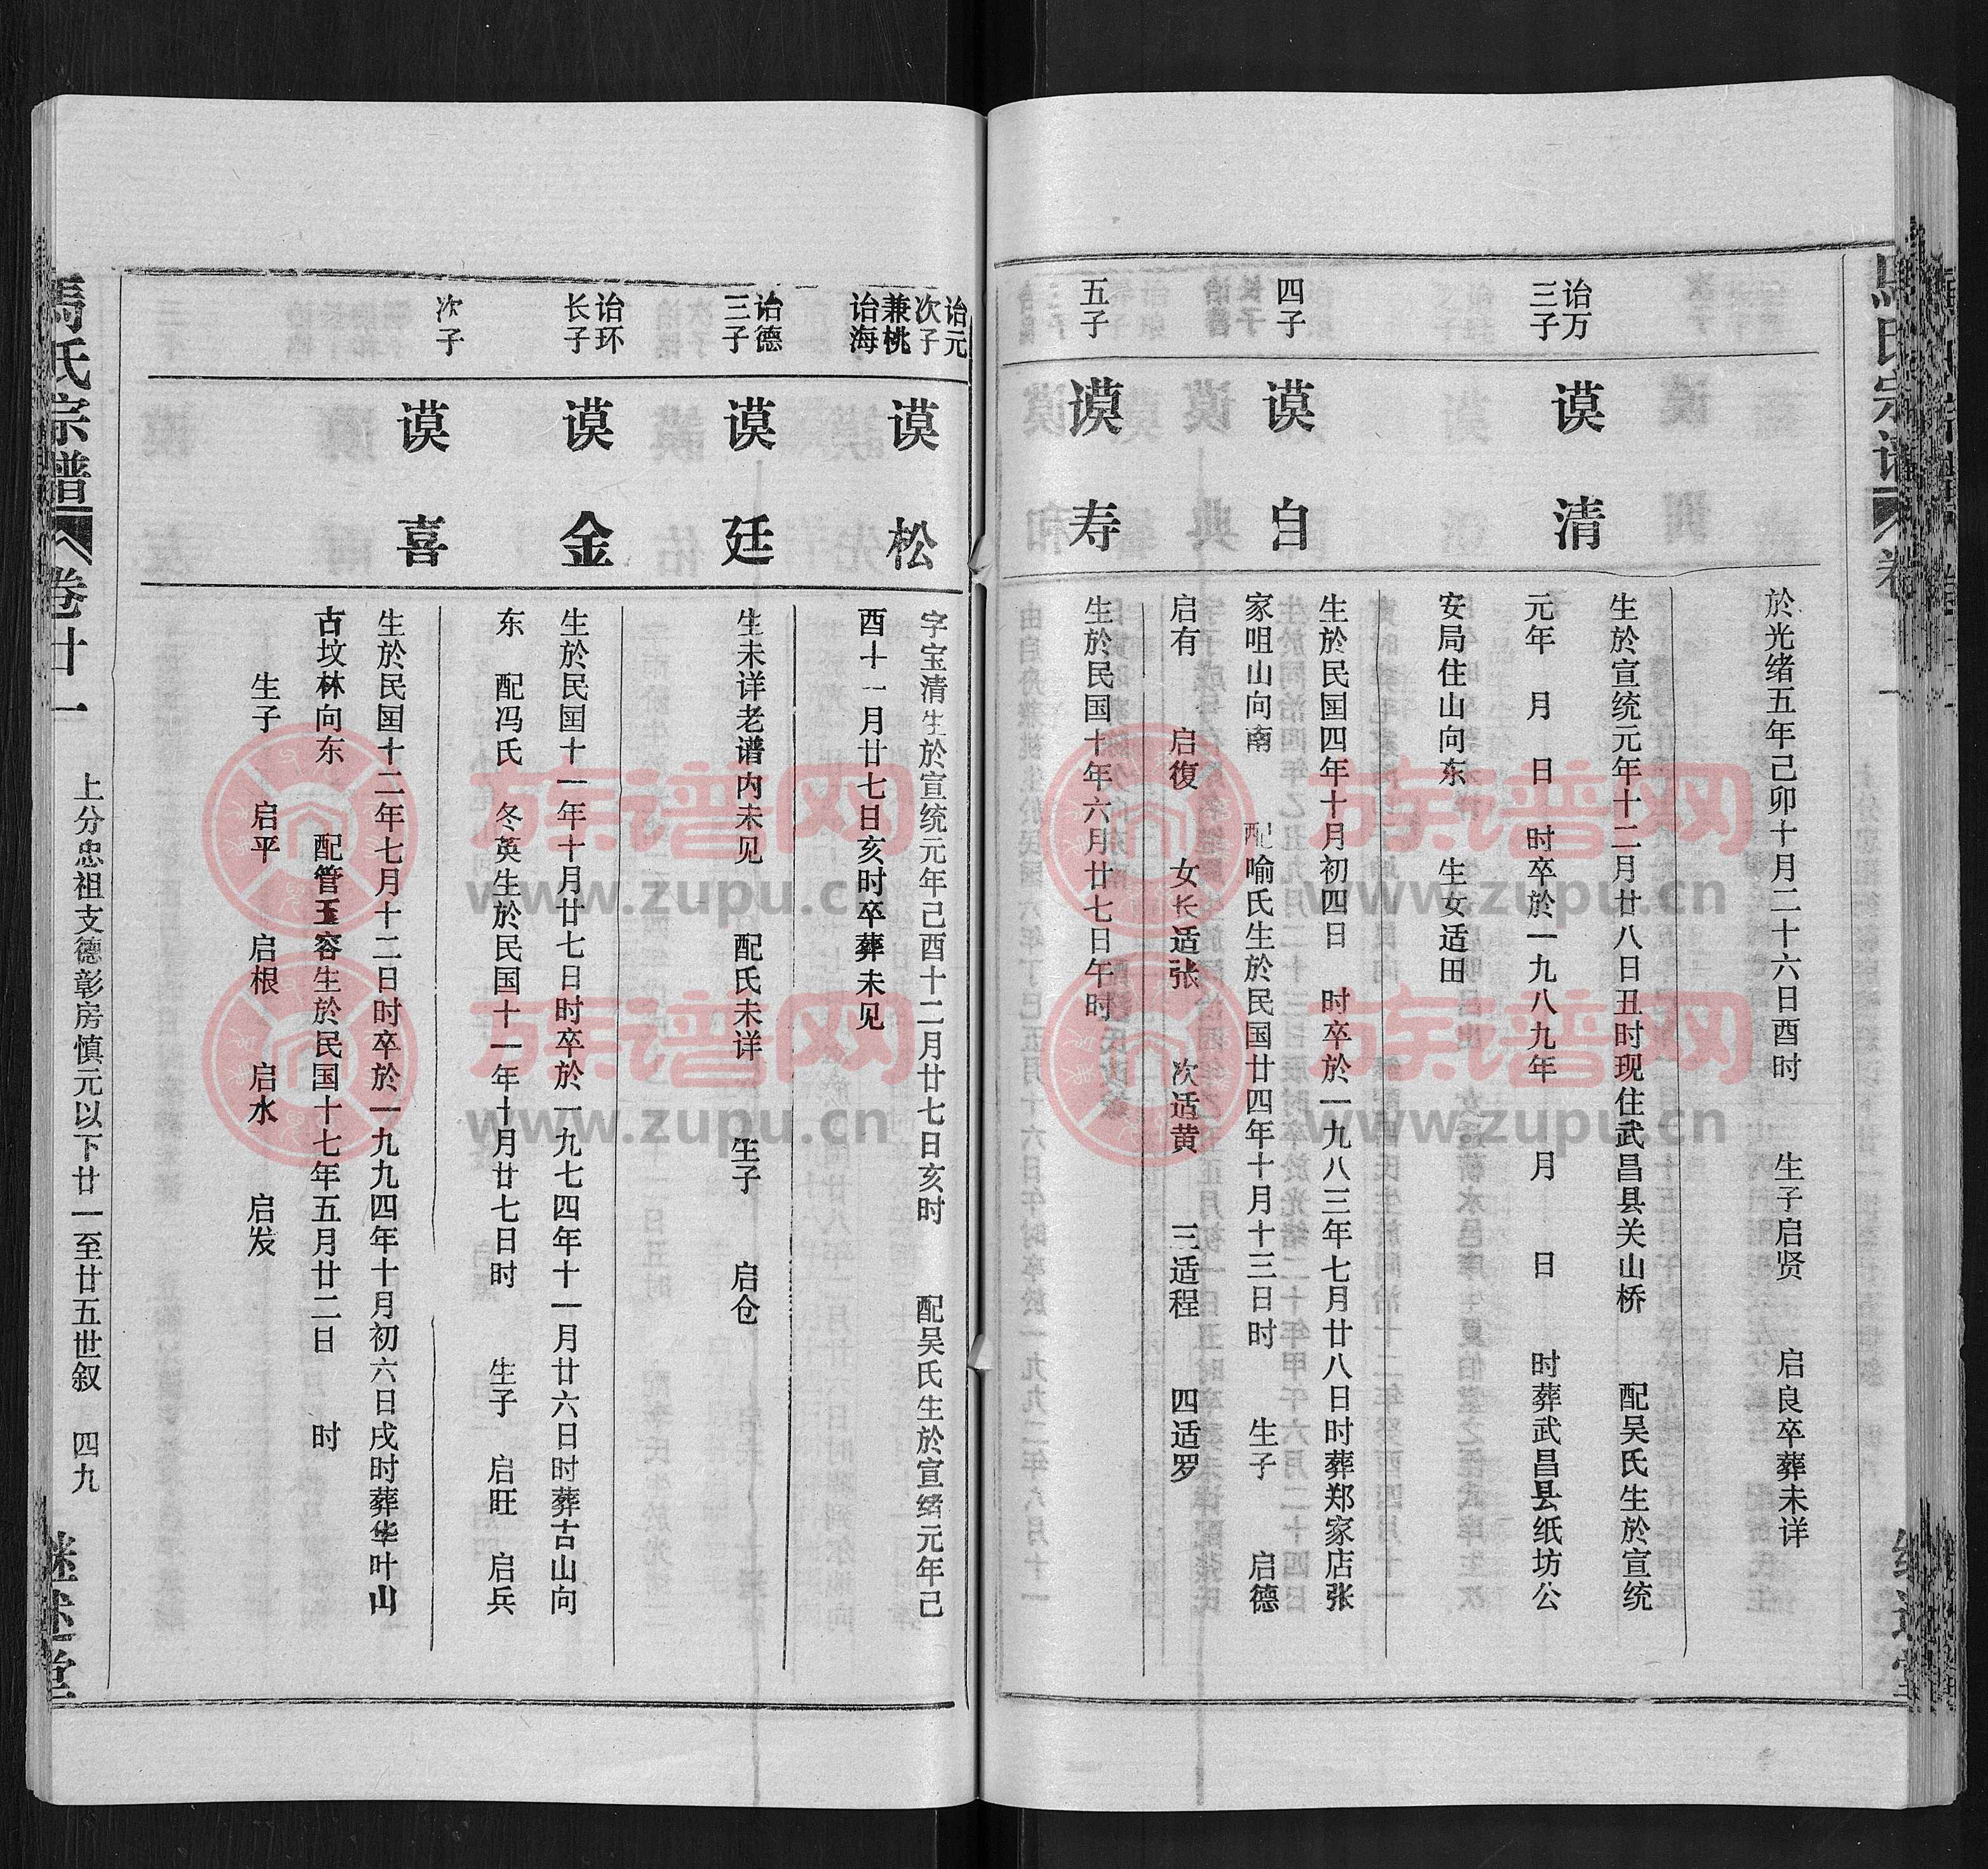 於光绪五年己卯十月二十六日酉时 生子启贤 启良卒葬未详
诒万
三子
谟清
生於宣统元年十二月廿八日丑时现住武昌县关山桥 配吴氏生於宣统
元年 月 日 时卒於一九八九年 月 日 时葬武昌县纸坊公
安局住山向东 生女适田
四子
谟自
生於民国四年十月初四日 时卒於一九八三年七月廿八日时葬郑家店张
家咀山向南 配喻氏生於民国廿四年十月十三日时 生子 启德
启有 启復 女长适张 次适黄 三适程 四适罗
五子
谟寿
生於民国十年六月廿七日午时
诒元
次子
兼桃
诒海
谟松
字宝清生於宣统元年己酉十二月廿七日亥时 配吴氏生於宣绪元年己
酉十一月廿七日亥时卒葬未见
诒德
三子
谟廷
生未详老谱内未见 配氏未详 生子 启仓
诒环
长子
谟金
生於民国十一年十月廿七日时卒於一九七四年十一月廿六日时葬古山向
东 配冯氏 冬英生於民国十一年十月廿七日时 生子 启旺 启兵
次子
谟喜
生於民国十二年七月十二日时卒於一九九四年十月初六日戌时葬华叶山
古坟林向东 配管玉容生於民国十七年五月廿二日 时
生子 启平 启根 启水 启发
馬氏宗譜 卷廿一 上分忠祖支德彰房慎元以下廿一至廿五世叙 四九 继述堂
族谱网
www.zupu.cn
族谱网
www.zupu.cn
族谱网
www.zupu.cn
族谱网
www.zupu.cn